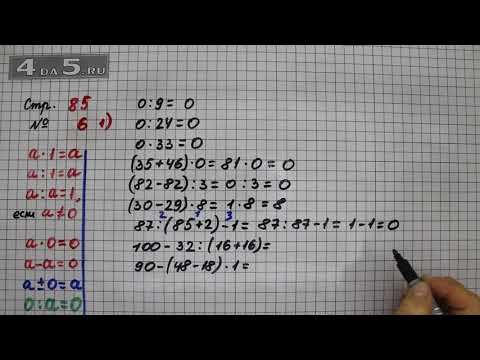 4 DA 5.RU
Стр. 85
№ 6 1)
a · 1 = a
a : 1 = a
a : a = 1,
если a ≠ 0
a · 0 = 0
a - a = 0
a ± 0 = a
0 : a = 0
0 : 9 = 0
0 : 24 = 0
0 · 33 = 0
(35 + 46) · 0 = 81 · 0 = 0
(82 - 82) : 3 = 0 : 3 = 0
(30 - 29) · 8 = 1 · 8 = 8
2 1 3
87 : (85 + 2) - 1 = 87 : 87 - 1 = 1 - 1 = 0
100 - 32 : (16 + 16) =
90 - (48 - 18) · 1 =